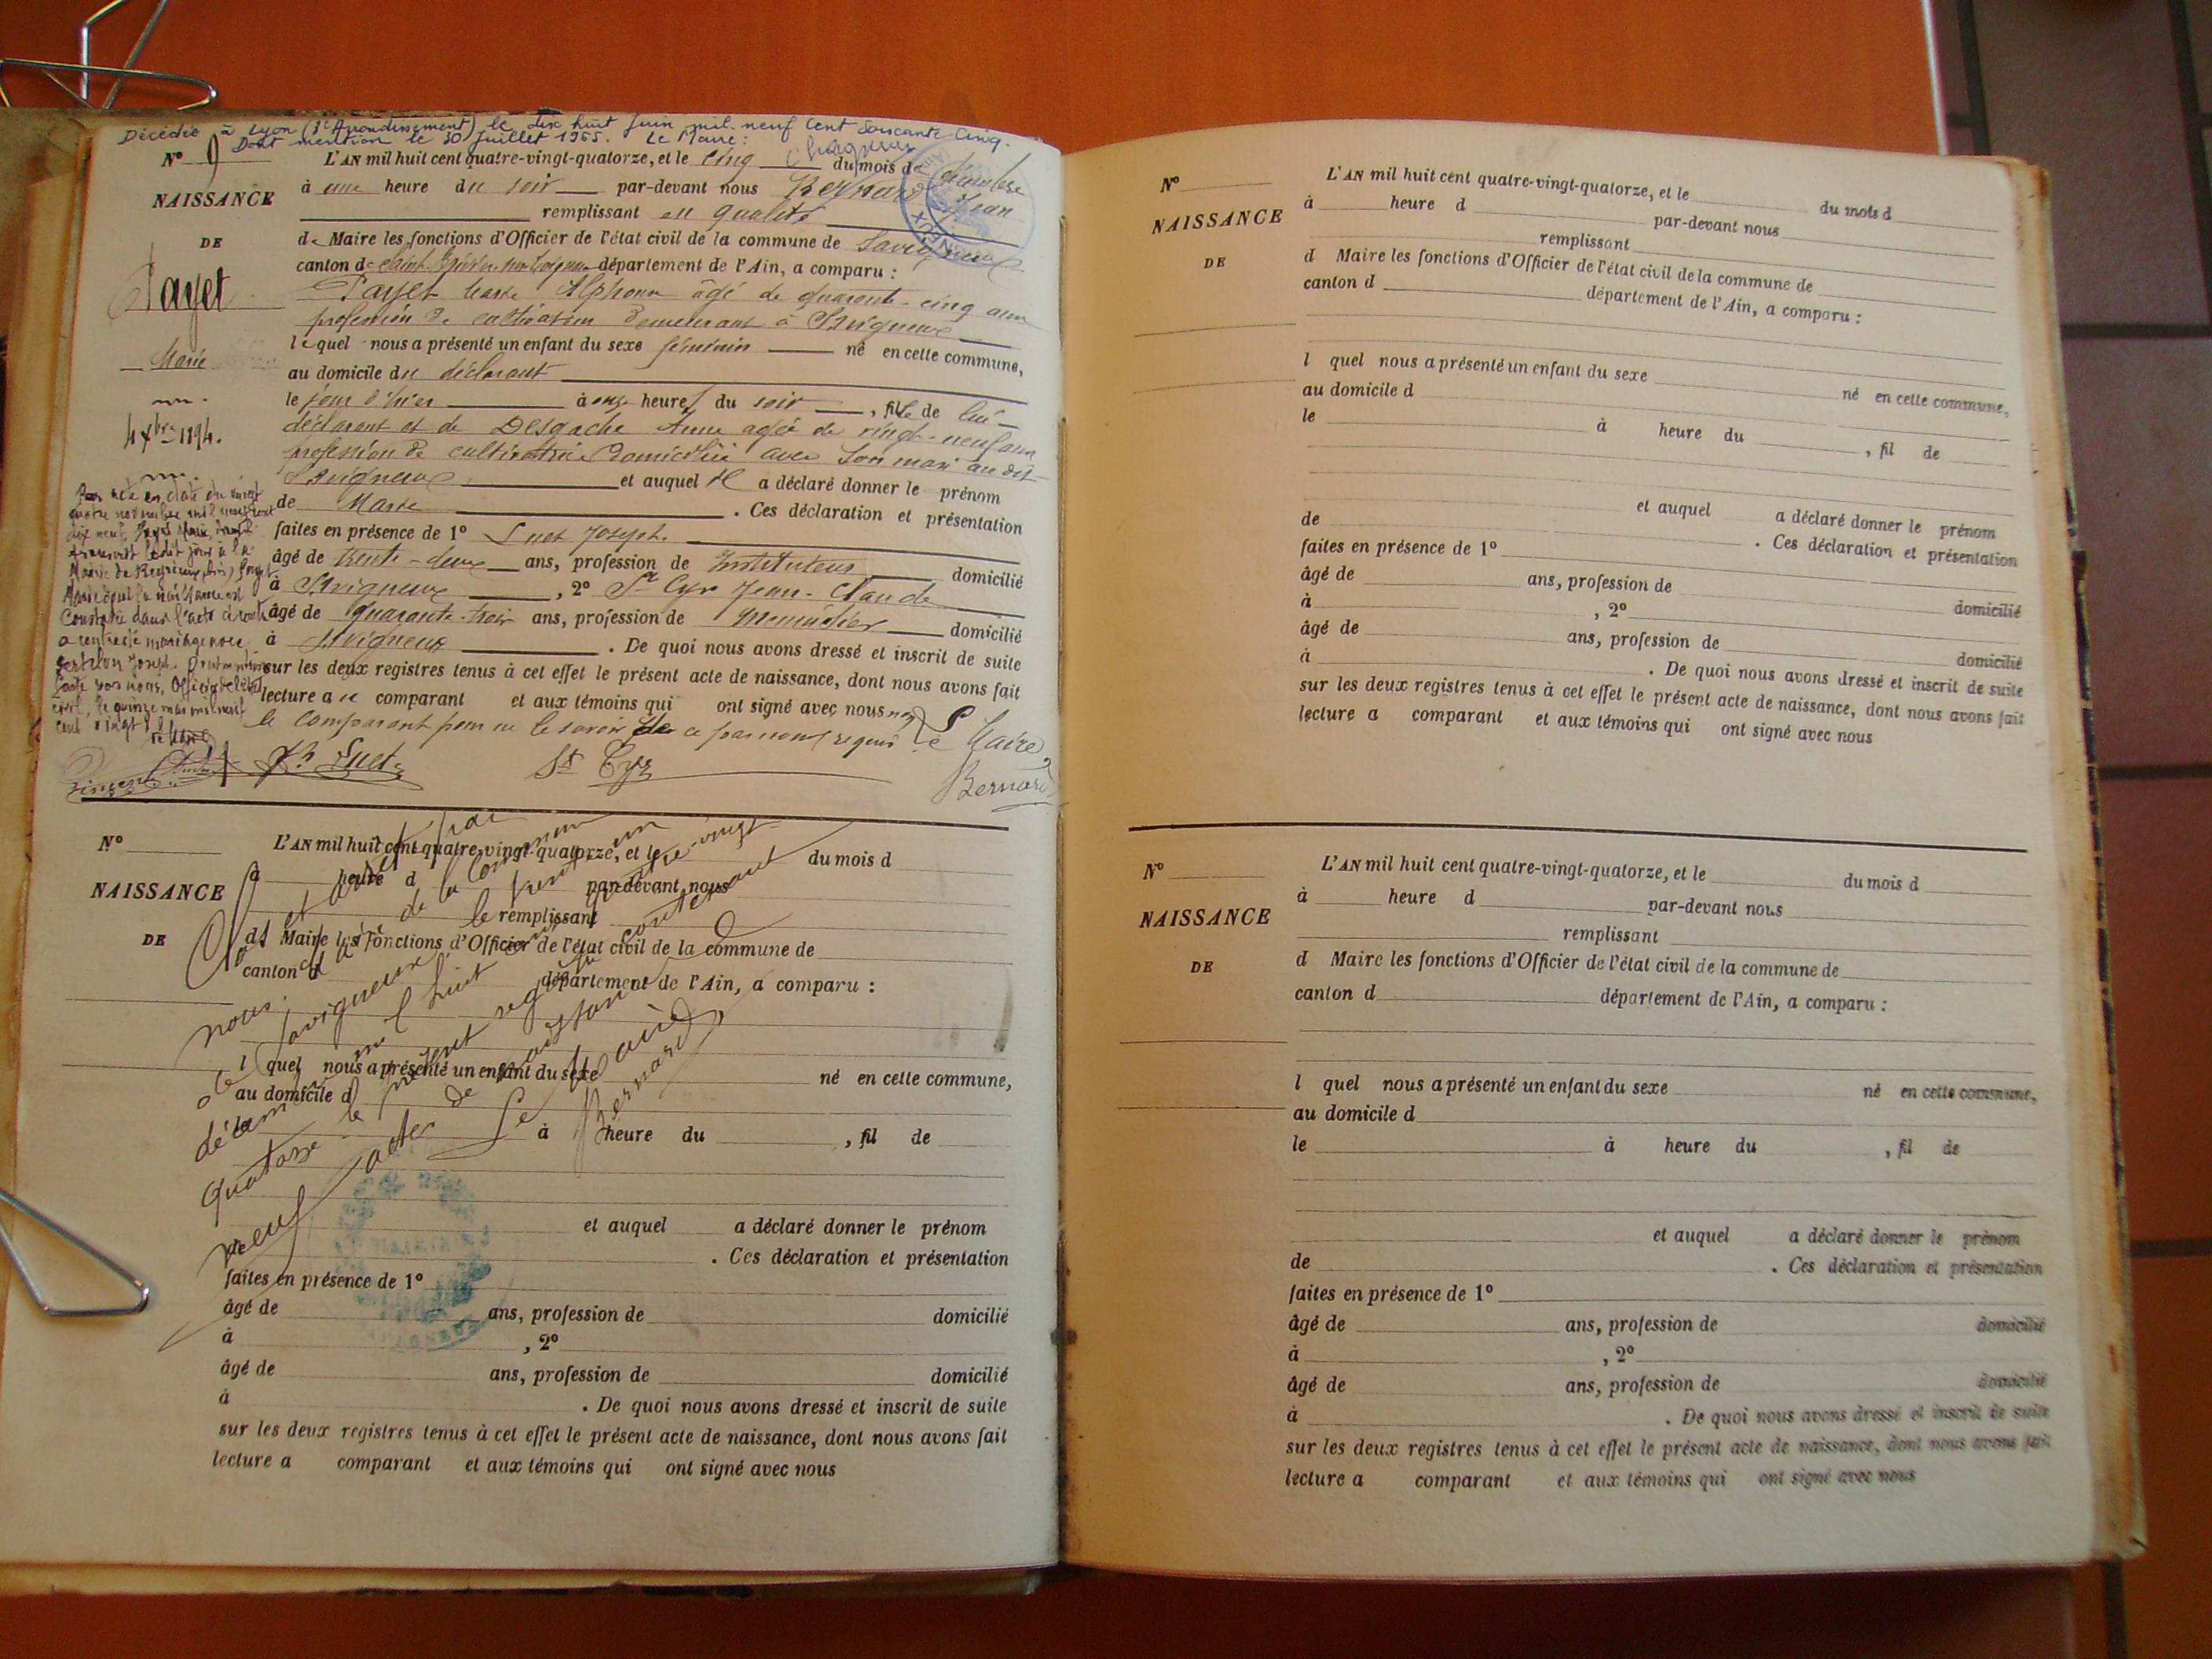 Décédée à Lyon (3e Arrondissement) le dix huit Juin mil neuf cent soixante cinq.
Dont mention le 30 Juillet 1965. Le Maire:
N° 9
NAISSANCE
DE
Payet
Marie
4 Xbre 1894.
L'AN mil huit cent quatre-vingt-quatorze, et le cinq du mois de décembre
à une heure du soir par-devant nous Bernard Jean
remplissant en qualité
de Maire les fonctions d'Officier de l'état civil de la commune de Savigneux
canton de Saint département de l'Ain, a comparu :
Payet Alphonse âgé de quarante-cinq ans
profession de cultivateur demeurant à Savigneux
lequel nous a présenté un enfant du sexe féminin né en cette commune,
au domicile du déclarant
le jour d'hier à onze heures du soir, fille de lui
déclarant et de Desgache Anne agée de vingt-neuf ans
profession de cultivatrice domiciliée avec son mari au dit
Savigneux et auquel il a déclaré donner le prénom
de Marie. Ces déclaration et présentation
faites en présence de 1° Suet Joseph
âgé de trente-deux ans, profession de Instituteur domicilié
à Savigneux, 2° St Cyr Jean-Claude
âgé de quarante-trois ans, profession de menuisier domicilié
à Savigneux. De quoi nous avons dressé et inscrit de suite
sur les deux registres tenus à cet effet le présent acte de naissance, dont nous avons fait
lecture au comparant et aux témoins qui ont signé avec nous non
le comparant pour ne le savoir de ce par nous requis Le Maire
Suet
St Cyr
Bernard
N°
NAISSANCE
DE
L'AN mil huit cent quatre-vingt-quatorze, et le du mois d
à heure d par-devant nous
remplissant
d Maire les fonctions d'Officier de l'état civil de la commune de
canton d département de l'Ain, a comparu :
l quel nous a présenté un enfant du sexe né en cette commune,
au domicile d
le à heure du , fil de
et auquel a déclaré donner le prénom
de . Ces déclaration et présentation
faites en présence de 1°
âgé de ans, profession de domicilié
à , 2°
âgé de ans, profession de domicilié
à . De quoi nous avons dressé et inscrit de suite
sur les deux registres tenus à cet effet le présent acte de naissance, dont nous avons fait
lecture a comparant et aux témoins qui ont signé avec nous
Clos et arrêté par
nous, de la commune
de Savigneux le trente un
décembre mil huit cent quatre-vingt
quatorze le présent registre contenant
neuf actes de naissance
Le Maire
Bernard
N°
NAISSANCE
DE
L'AN mil huit cent quatre-vingt-quatorze, et le du mois d
à heure d par-devant nous
remplissant
d Maire les fonctions d'Officier de l'état civil de la commune de
canton d département de l'Ain, a comparu :
l quel nous a présenté un enfant du sexe né en cette commune,
au domicile d
le à heure du , fil de
et auquel a déclaré donner le prénom
de . Ces déclaration et présentation
faites en présence de 1°
âgé de ans, profession de domicilié
à , 2°
âgé de ans, profession de domicilié
à . De quoi nous avons dressé et inscrit de suite
sur les deux registres tenus à cet effet le présent acte de naissance, dont nous avons fait
lecture a comparant et aux témoins qui ont signé avec nous
N°
NAISSANCE
DE
L'AN mil huit cent quatre-vingt-quatorze, et le du mois d
à heure d par-devant nous
remplissant
d Maire les fonctions d'Officier de l'état civil de la commune de
canton d département de l'Ain, a comparu :
l quel nous a présenté un enfant du sexe né en cette commune,
au domicile d
le à heure du , fil de
et auquel a déclaré donner le prénom
de . Ces déclaration et présentation
faites en présence de 1°
âgé de ans, profession de domicilié
à , 2°
âgé de ans, profession de domicilié
à . De quoi nous avons dressé et inscrit de suite
sur les deux registres tenus à cet effet le présent acte de naissance, dont nous avons fait
lecture a comparant et aux témoins qui ont signé avec nous